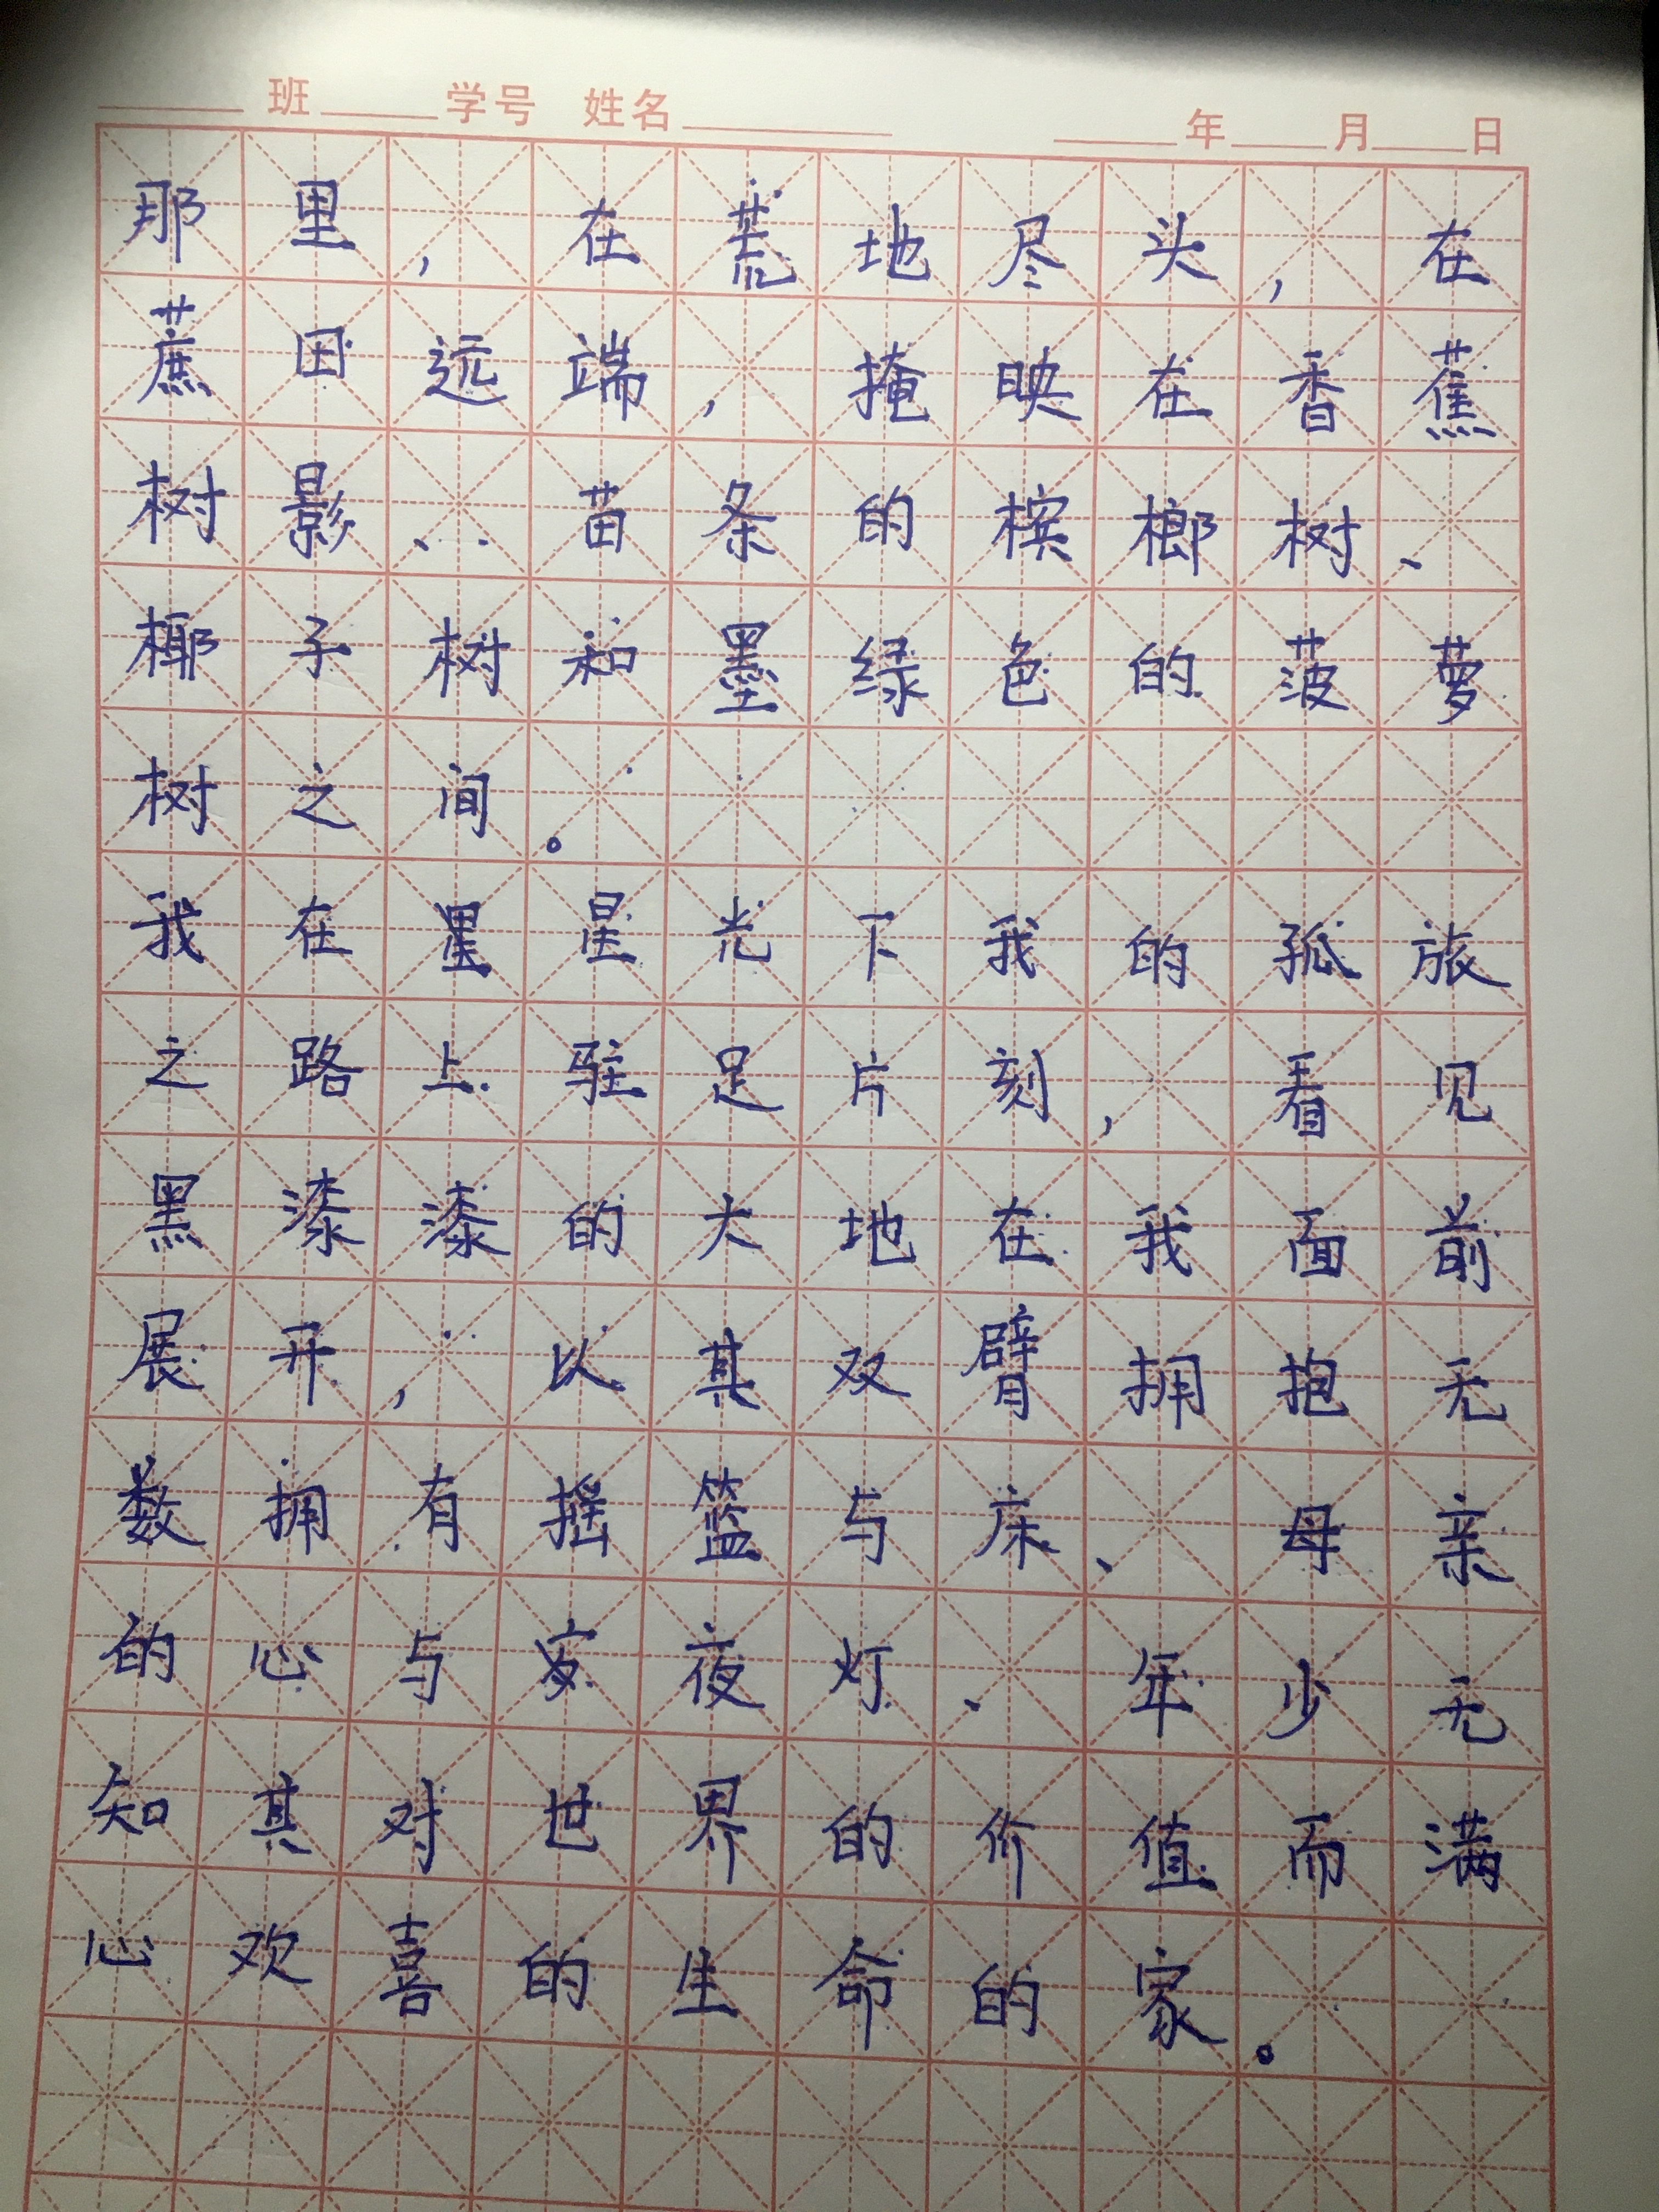 班 学号 姓名 年 月 日
那里，在荒地尽头，在
蔗因远端，掩映在香蕉
树影、苗条的槟榔树、
椰子树和墨绿色的菠萝
树之间。
我在星光下我的孤旅
之路上驻足片刻，看见
黑漆漆的大地在我面前
展开，以其双臂拥抱无
数拥有摇篮与床、母亲
的心与夜灯、年少无
知其对世界的价值而满
心欢喜的生命的家。